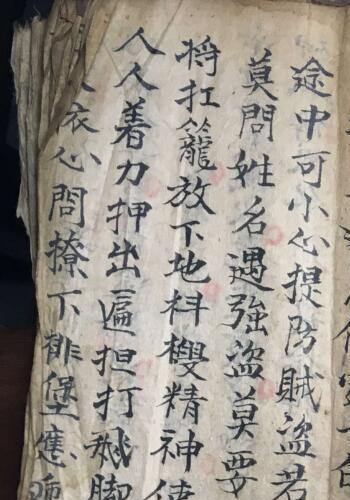 途中可小心提防賊盜若
莫問姓名遇強盜莫要
將扛籠放下地抖搜精神使
人人着力押出匾担打飛脚
衣心問撩下排堡應